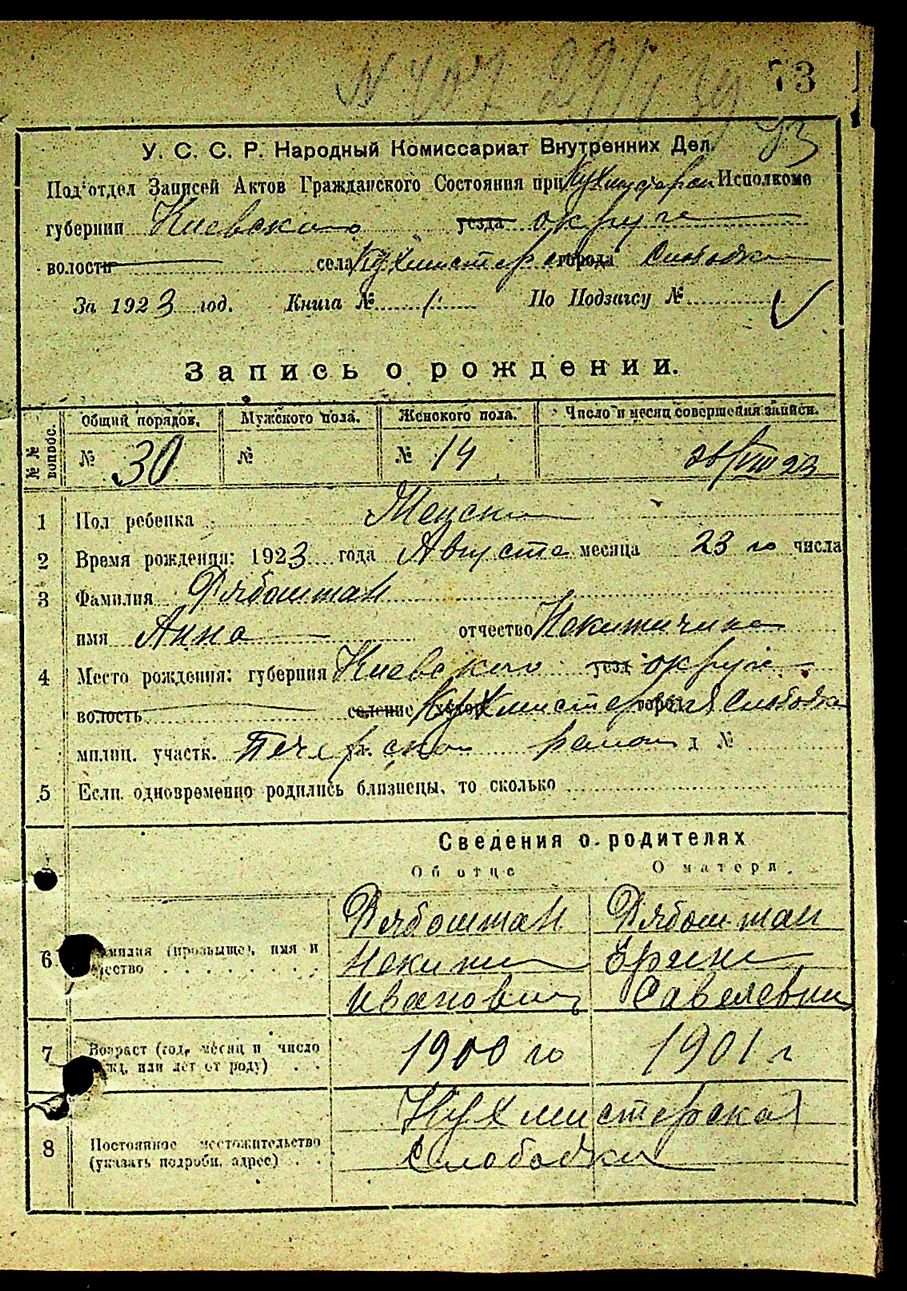 N 407 29/I 39 73
93
У. С. С. Р. Народный Комиссариат Внутренних Дел.
Под'отдел Записей Актов Гражданского Состояния при Кухмистерском Исполкоме
губернии Киевского уезда округа
волости села Кухмистерская города Слободка
За 1923 год. Книга № 1 По Подзагсу №
Запись о рождении.
№№ вопрос. Общий порядок. Мужского пола. Женского пола. Число и месяц совершения записи.
№ 30 № № 14 26/VIII 23
1 Пол ребенка Женски
2 Время рождения: 1923 года Августа месяца 23 го числа
3 Фамилия Рябоштан
имя Анна отчество Никитична
4 Место рождения: губерния Киевского уезд округа
волость селение Кухмистерская город Слободка
милиц. участк. Печерского района д №
5 Если одновременно родились близнецы, то сколько
Сведения о родителях
Об отце О матери
Рябоштан Рябоштан
6 Фамилия (прозвыще), имя и Никита Ерина
отчество Иванович Савелевна
7 Возраст (год, месяц и число 1900 го 1901 г
рожд. или лет от роду)
Кухмистерская
8 Постоянное местожительство Слободка
(указать подробн. адрес)